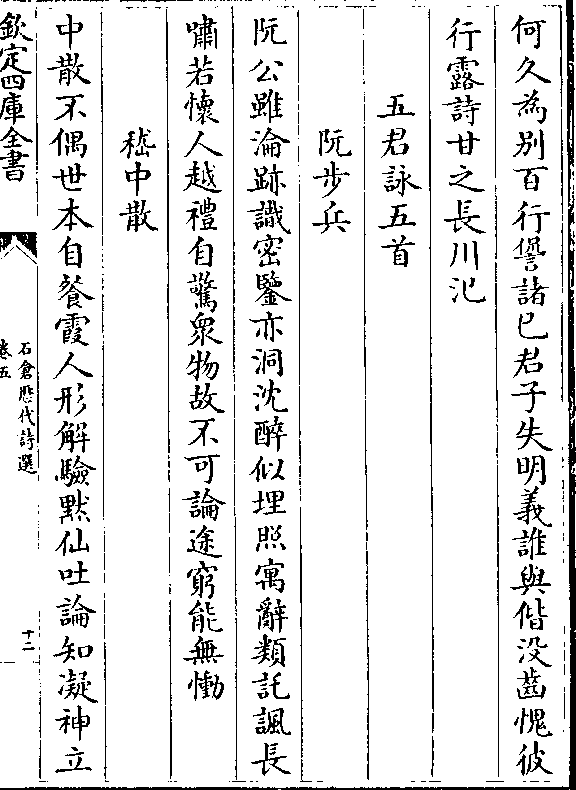 何久為別百行諐諸已君子失明義誰與偕沒齒愧彼
行露詩甘之長川汜
五君詠五首
阮步兵
阮公雖淪跡識密鑒亦洞沈醉似埋照寓辭類託諷長
嘯若懷人越禮自驚衆物故不可論途窮能無慟
嵇中散
中散不偶世本自餐霞人形解驗黙仙吐論知凝神立
欽定四庫全書
石倉歴代詩選
卷五
十二